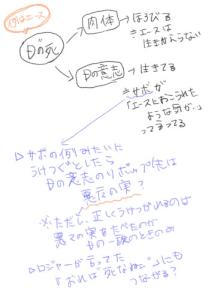 例はエース
Dの死
肉体 → ほろびる
⇒エースは
生きかえらない
Dの意志 → 生きてる
⇒サボが
「エースといわれた
ような気が…」
って言ってる
▷サボの例みたいに
うけつぐとしたら
Dの意志のリポップ先は
悪魔の実?
※ただし、正しくうけつがれるのは
悪マの実をたべたのが
Dの一族のときのみ
▷ロジャーが言ってた
"おれは死なねぇ"にも
つなげる?